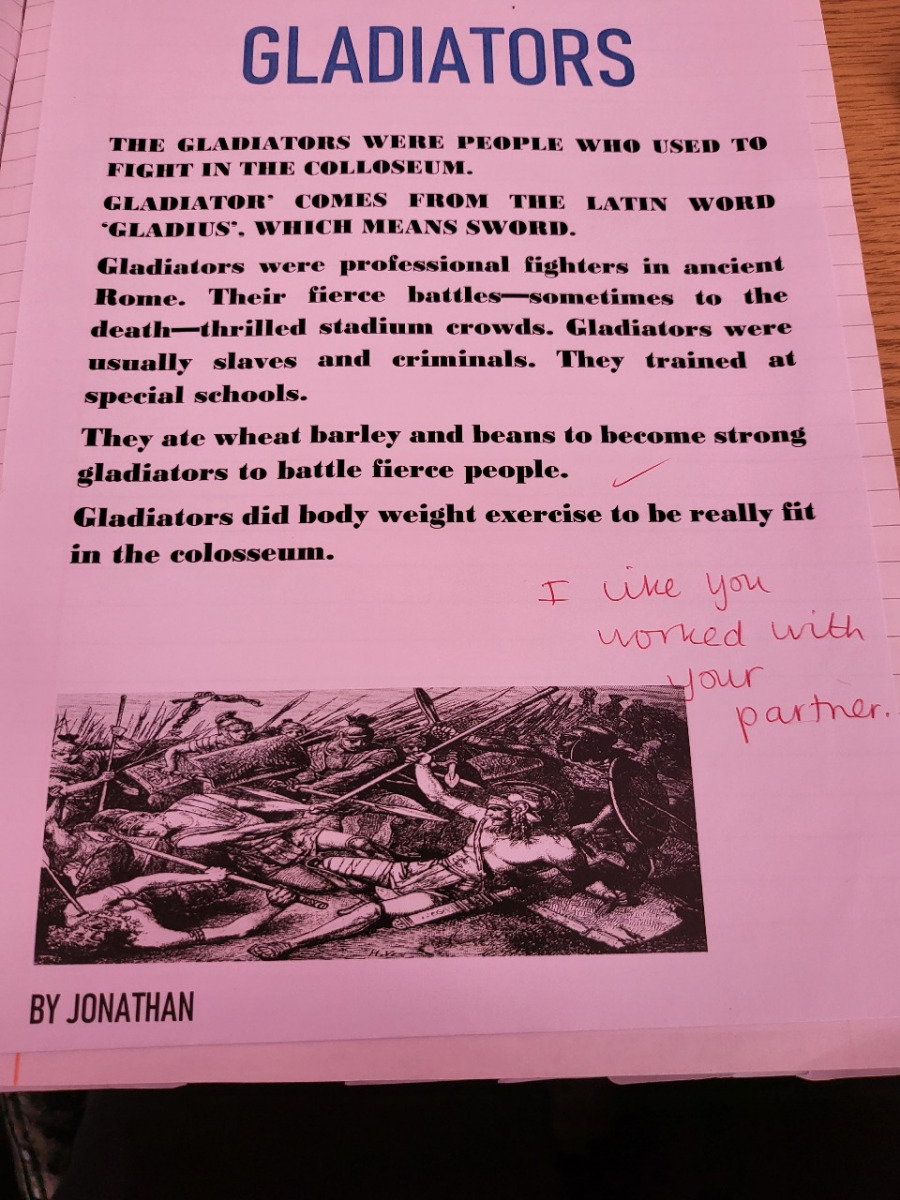 GLADIATORS
THE GLADIATORS WERE PEOPLE WHO USED TO
FIGHT IN THE COLLOSEUM.
GLADIATOR’ COMES FROM THE LATIN WORD
‘GLADIUS’, WHICH MEANS SWORD.
Gladiators were professional fighters in ancient
Rome. Their fierce battles—sometimes to the
death—thrilled stadium crowds. Gladiators were
usually slaves and criminals. They trained at
special schools.
They ate wheat barley and beans to become strong
gladiators to battle fierce people.
Gladiators did body weight exercise to be really fit
in the colosseum.
I like you
worked with
your
partner.
BY JONATHAN